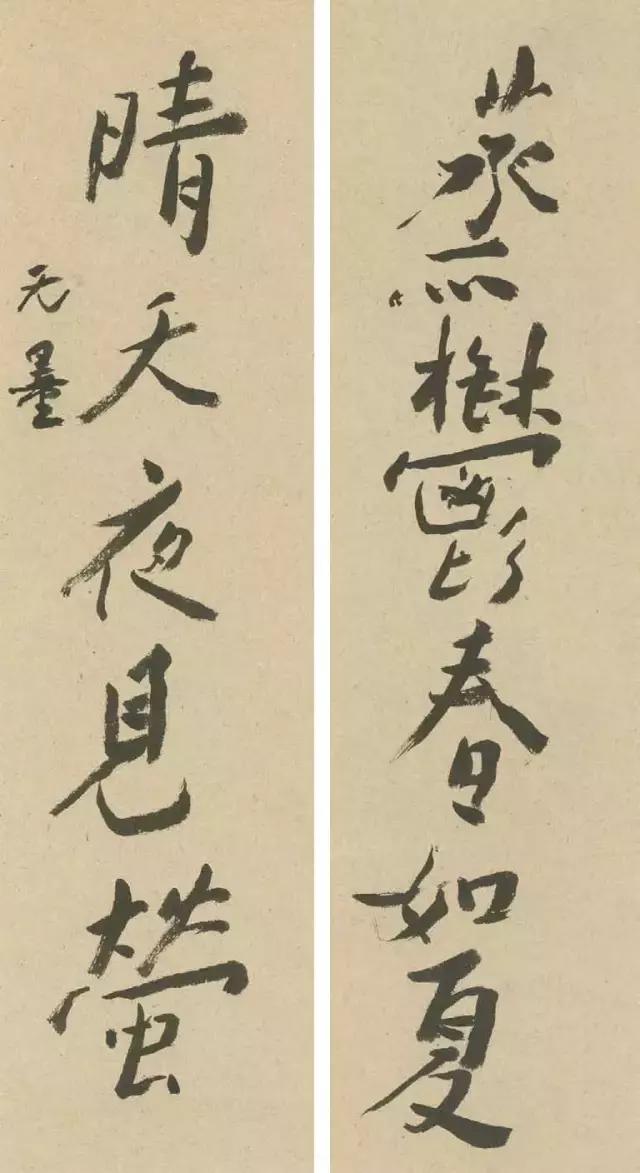 蒸鬱春如夏
晴天夜見螢
无墨